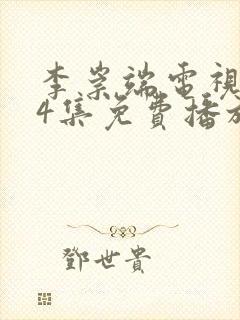 李崇端電視
4集免費播放
鄧世貴